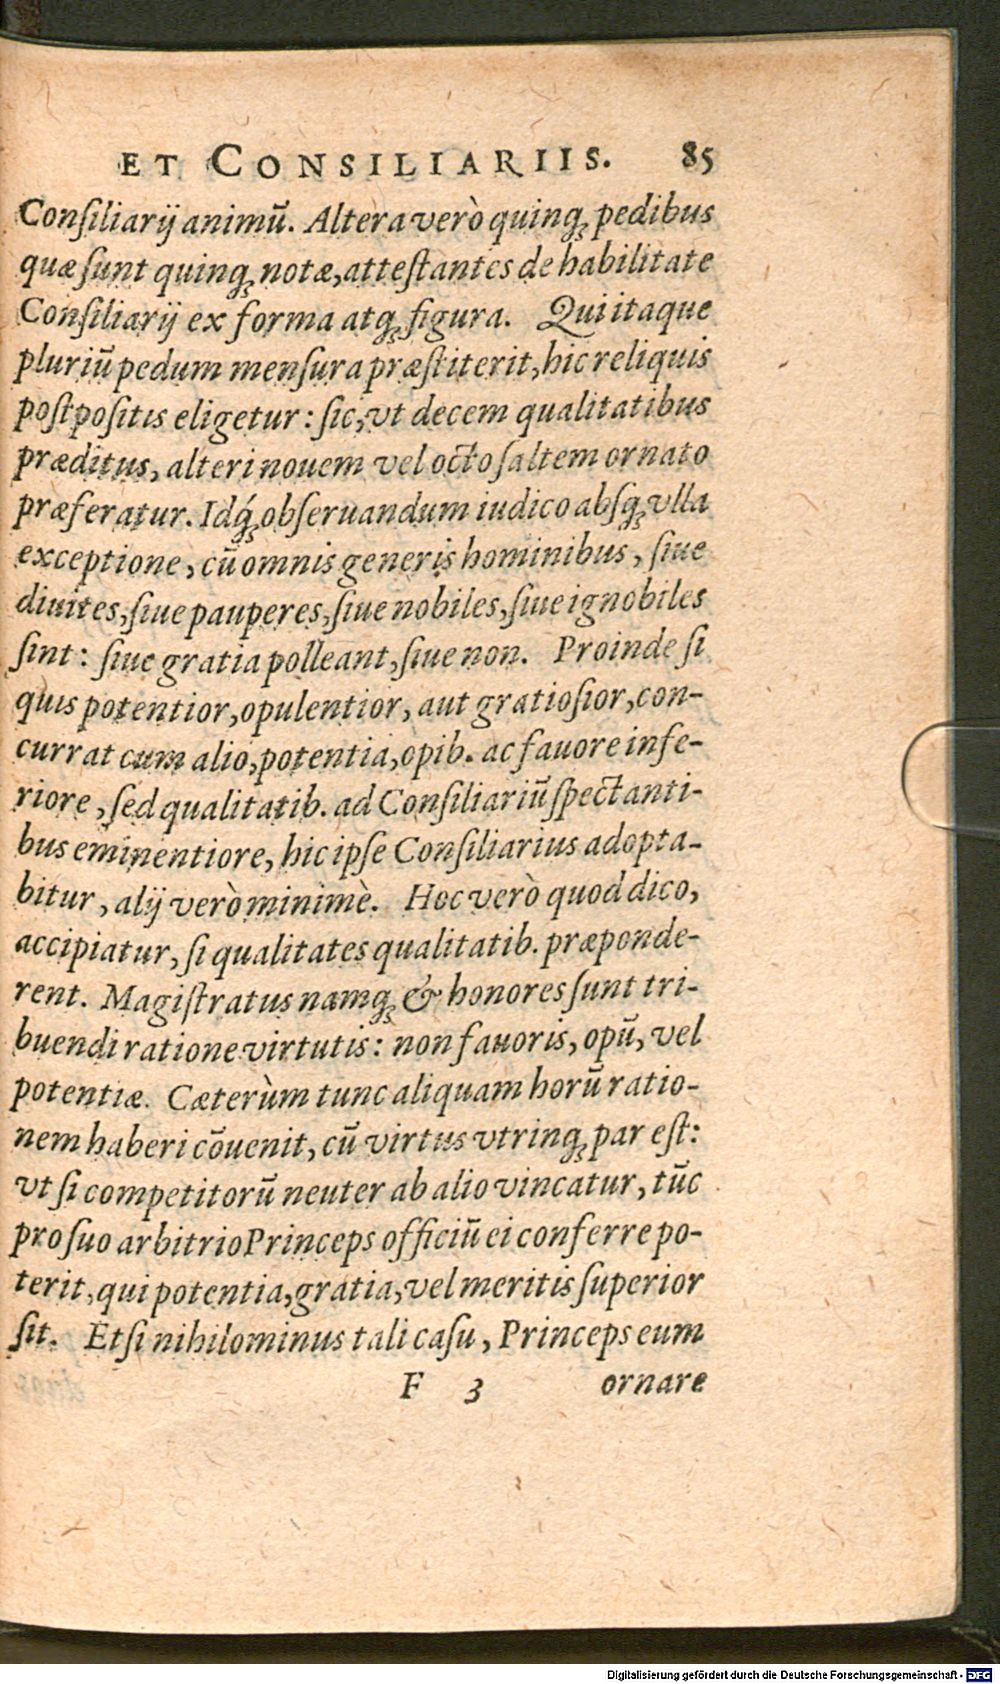 ET CONSILIARIIS. 85
Conſiliarij animū. Altera verò quinq; pedibus
quæ ſunt quinq; notæ, atteſtantes de habilitate
Conſiliarij ex forma atq; figura. Qui itaque
pluriū pedum menſura præſtiterit, hic reliquis
poſtpoſitis eligetur: ſic, vt decem qualitatibus
præditus, alteri nouem vel octo ſaltem ornato
præferatur. Idq́; obſeruandum iudico abſq; vlla
exceptione, cū omnis generis hominibus, ſiue
diuites, ſiue pauperes, ſiue nobiles, ſiue ignobiles
ſint: ſiue gratia polleant, ſiue non. Proinde ſi
quis potentior, opulentior, aut gratioſior, con-
currat cum alio, potentia, opib. ac fauore infe-
riore, ſed qualitatib. ad Conſiliariū ſpectanti-
bus eminentiore, hic ipſe Conſiliarius adopta-
bitur, alij verò minimè. Hoc verò quod dico,
accipiatur, ſi qualitates qualitatib. præponde-
rent. Magiſtratus namq; & honores ſunt tri-
buendi ratione virtutis: non fauoris, opū, vel
potentiæ. Cæterùm tunc aliquam horū ratio-
nem haberi cōuenit, cū virtus vtrinq; par eſt:
vt ſi competitorū neuter ab alio vincatur, tūc
pro ſuo arbitrio Princeps officiū ei conferre po-
terit, qui potentia, gratia, vel meritis ſuperior
ſit. Et ſi nihilominus tali caſu, Princeps eum
F 3 ornare
Digitalisierung gefördert durch die Deutsche Forschungsgemeinschaft - DFG